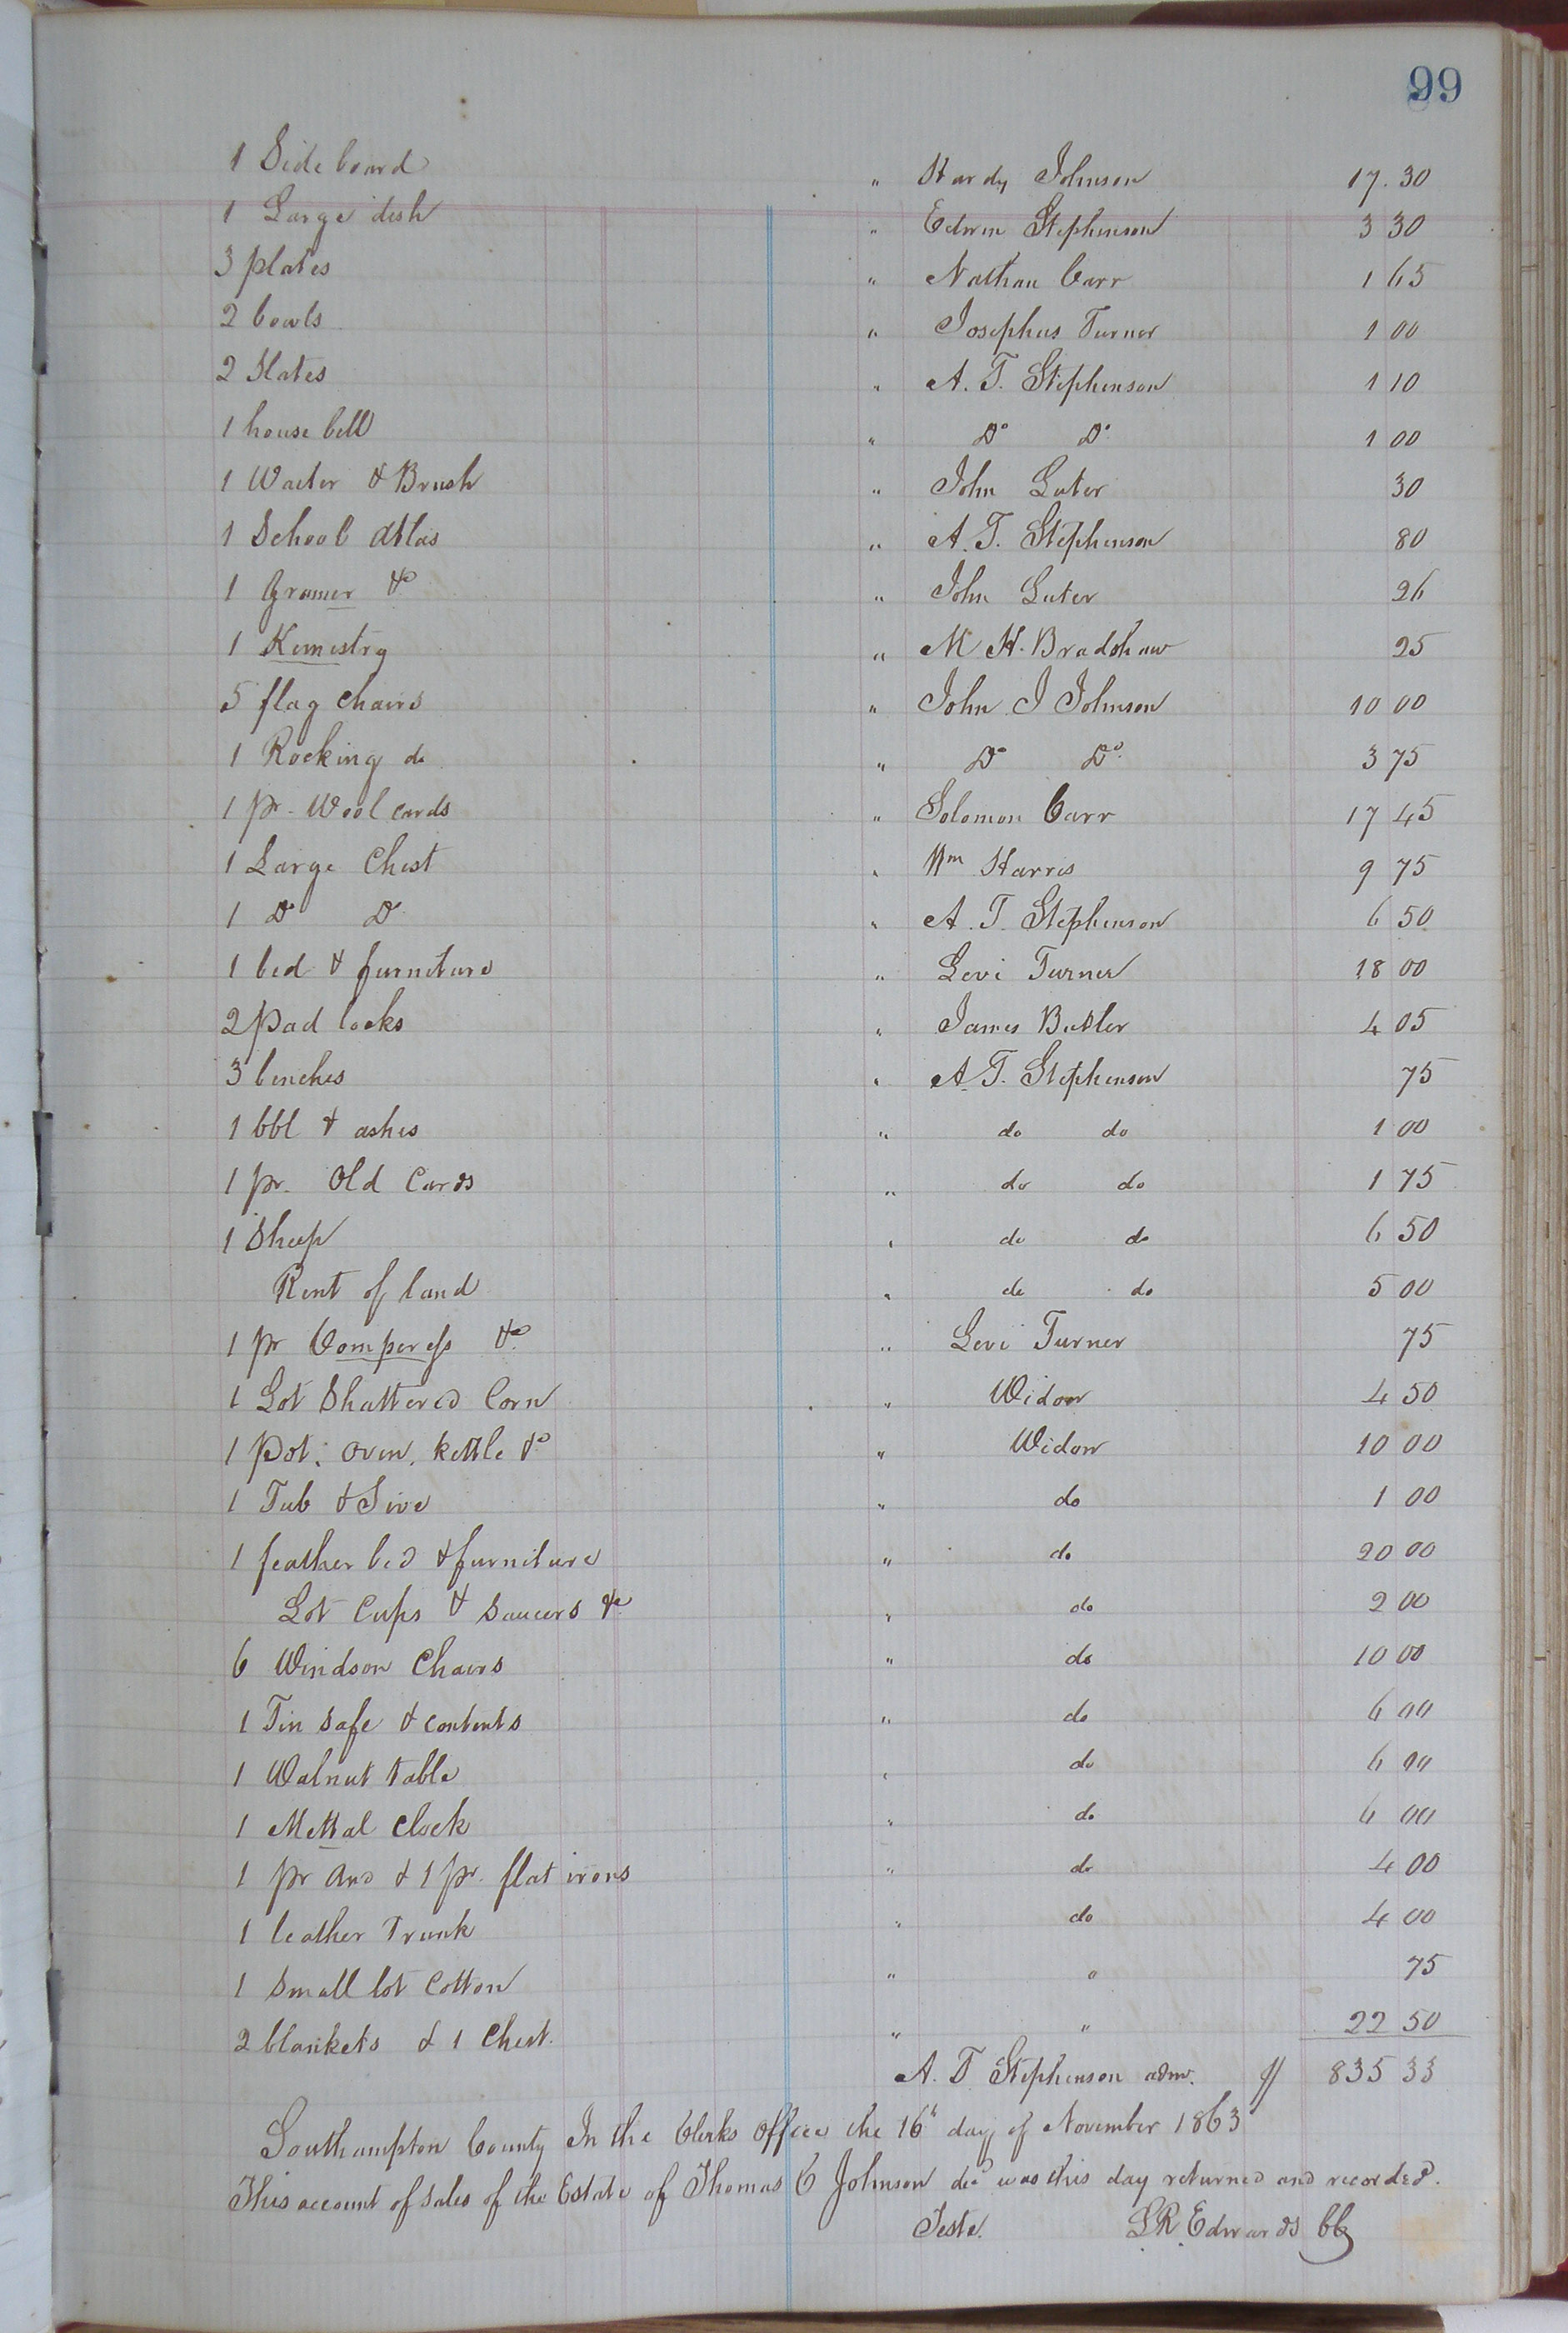 99
1 Side board " Hardy Johnson 17.30
1 Large dish " Edwin Stephenson 3 30
3 plates " Nathan Carr 1 65
2 bowls " Josephus Turner 1 00
2 Slates " A. T. Stephenson 1 10
1 house bell " Do Do 1 00
1 Waiter & Brush " John Luter 30
1 School Atlas " A. T. Stephenson 80
1 Gramer &c " John Luter 26
1 Kemistry " M H. Bradshaw 25
5 flag chairs " John J Johnson 10 00
1 Rocking do " Do Do 3 75
1 pr. Wool cards " Solomon Carr 17 45
1 Large Chest " Wm Harris 9 75
1 Do Do " A. T. Stephenson 6 50
1 bed & furniture " Levi Turner 18 00
2 pad locks " James Butler 4 05
3 benches " A. T. Stephenson 75
1 bbl & ashes " do do 1 00
1 pr. Old Cards " do do 1 75
1 Sheep " do do 6 50
Rent of land " do do 5 00
1 pr Compess &c " Levi Turner 75
1 Lot Shattered Corn " Widow 4 50
1 pot, oven, kettle &c " Widow 10 00
1 Tub & Sive " do 1 00
1 feather bed & furniture " do 20 00
Lot Cups & Saucers &c " do 2 00
6 Windson Chairs " do 10 00
1 Tin safe & contents " do 6 00
1 Walnut table " do 6 00
1 Mettal Clock " do 6 00
1 pr And & 1 pr. flat irons " do 4 00
1 leather Trunk " do 4 00
1 Small lot Cotton " " 75
2 blankets & 1 Chest. " " 22 50
A. T. Stephenson adm. $ 835 33
Southampton County In the Clerks Office the 16th day of November 1863
This account of sales of the Estate of Thomas C Johnson decd was this day returned and recorded.
Teste. L R. Edwards CC